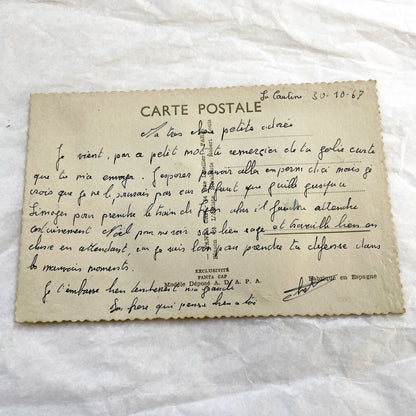 La Cantine 30-10-67
CARTE POSTALE
Ma très chère petite adorée
Je vient, par ce petit mot te remercier de ta jolie carte
que tu m'a envoyer. J'esperer pouvoir aller en perm ici mais je
crois que ça ne le pas car il faut que j'aille jusqu'a
Limoges pour prendre le train de alors il faudra attendre
Noël pour me voir sois bien sage et travaille bien en
classe en attendant, car je suis loin pour prendre ta défense dans
les mauvais moments.
EXCLUSIVITÉ
PANTA CAP
Modèle Déposé A. D. A. P. A.
Fabriqué en Espagne
Je t'embrasse bien tendrement ma grande
Ton frere qui pense bien a toi